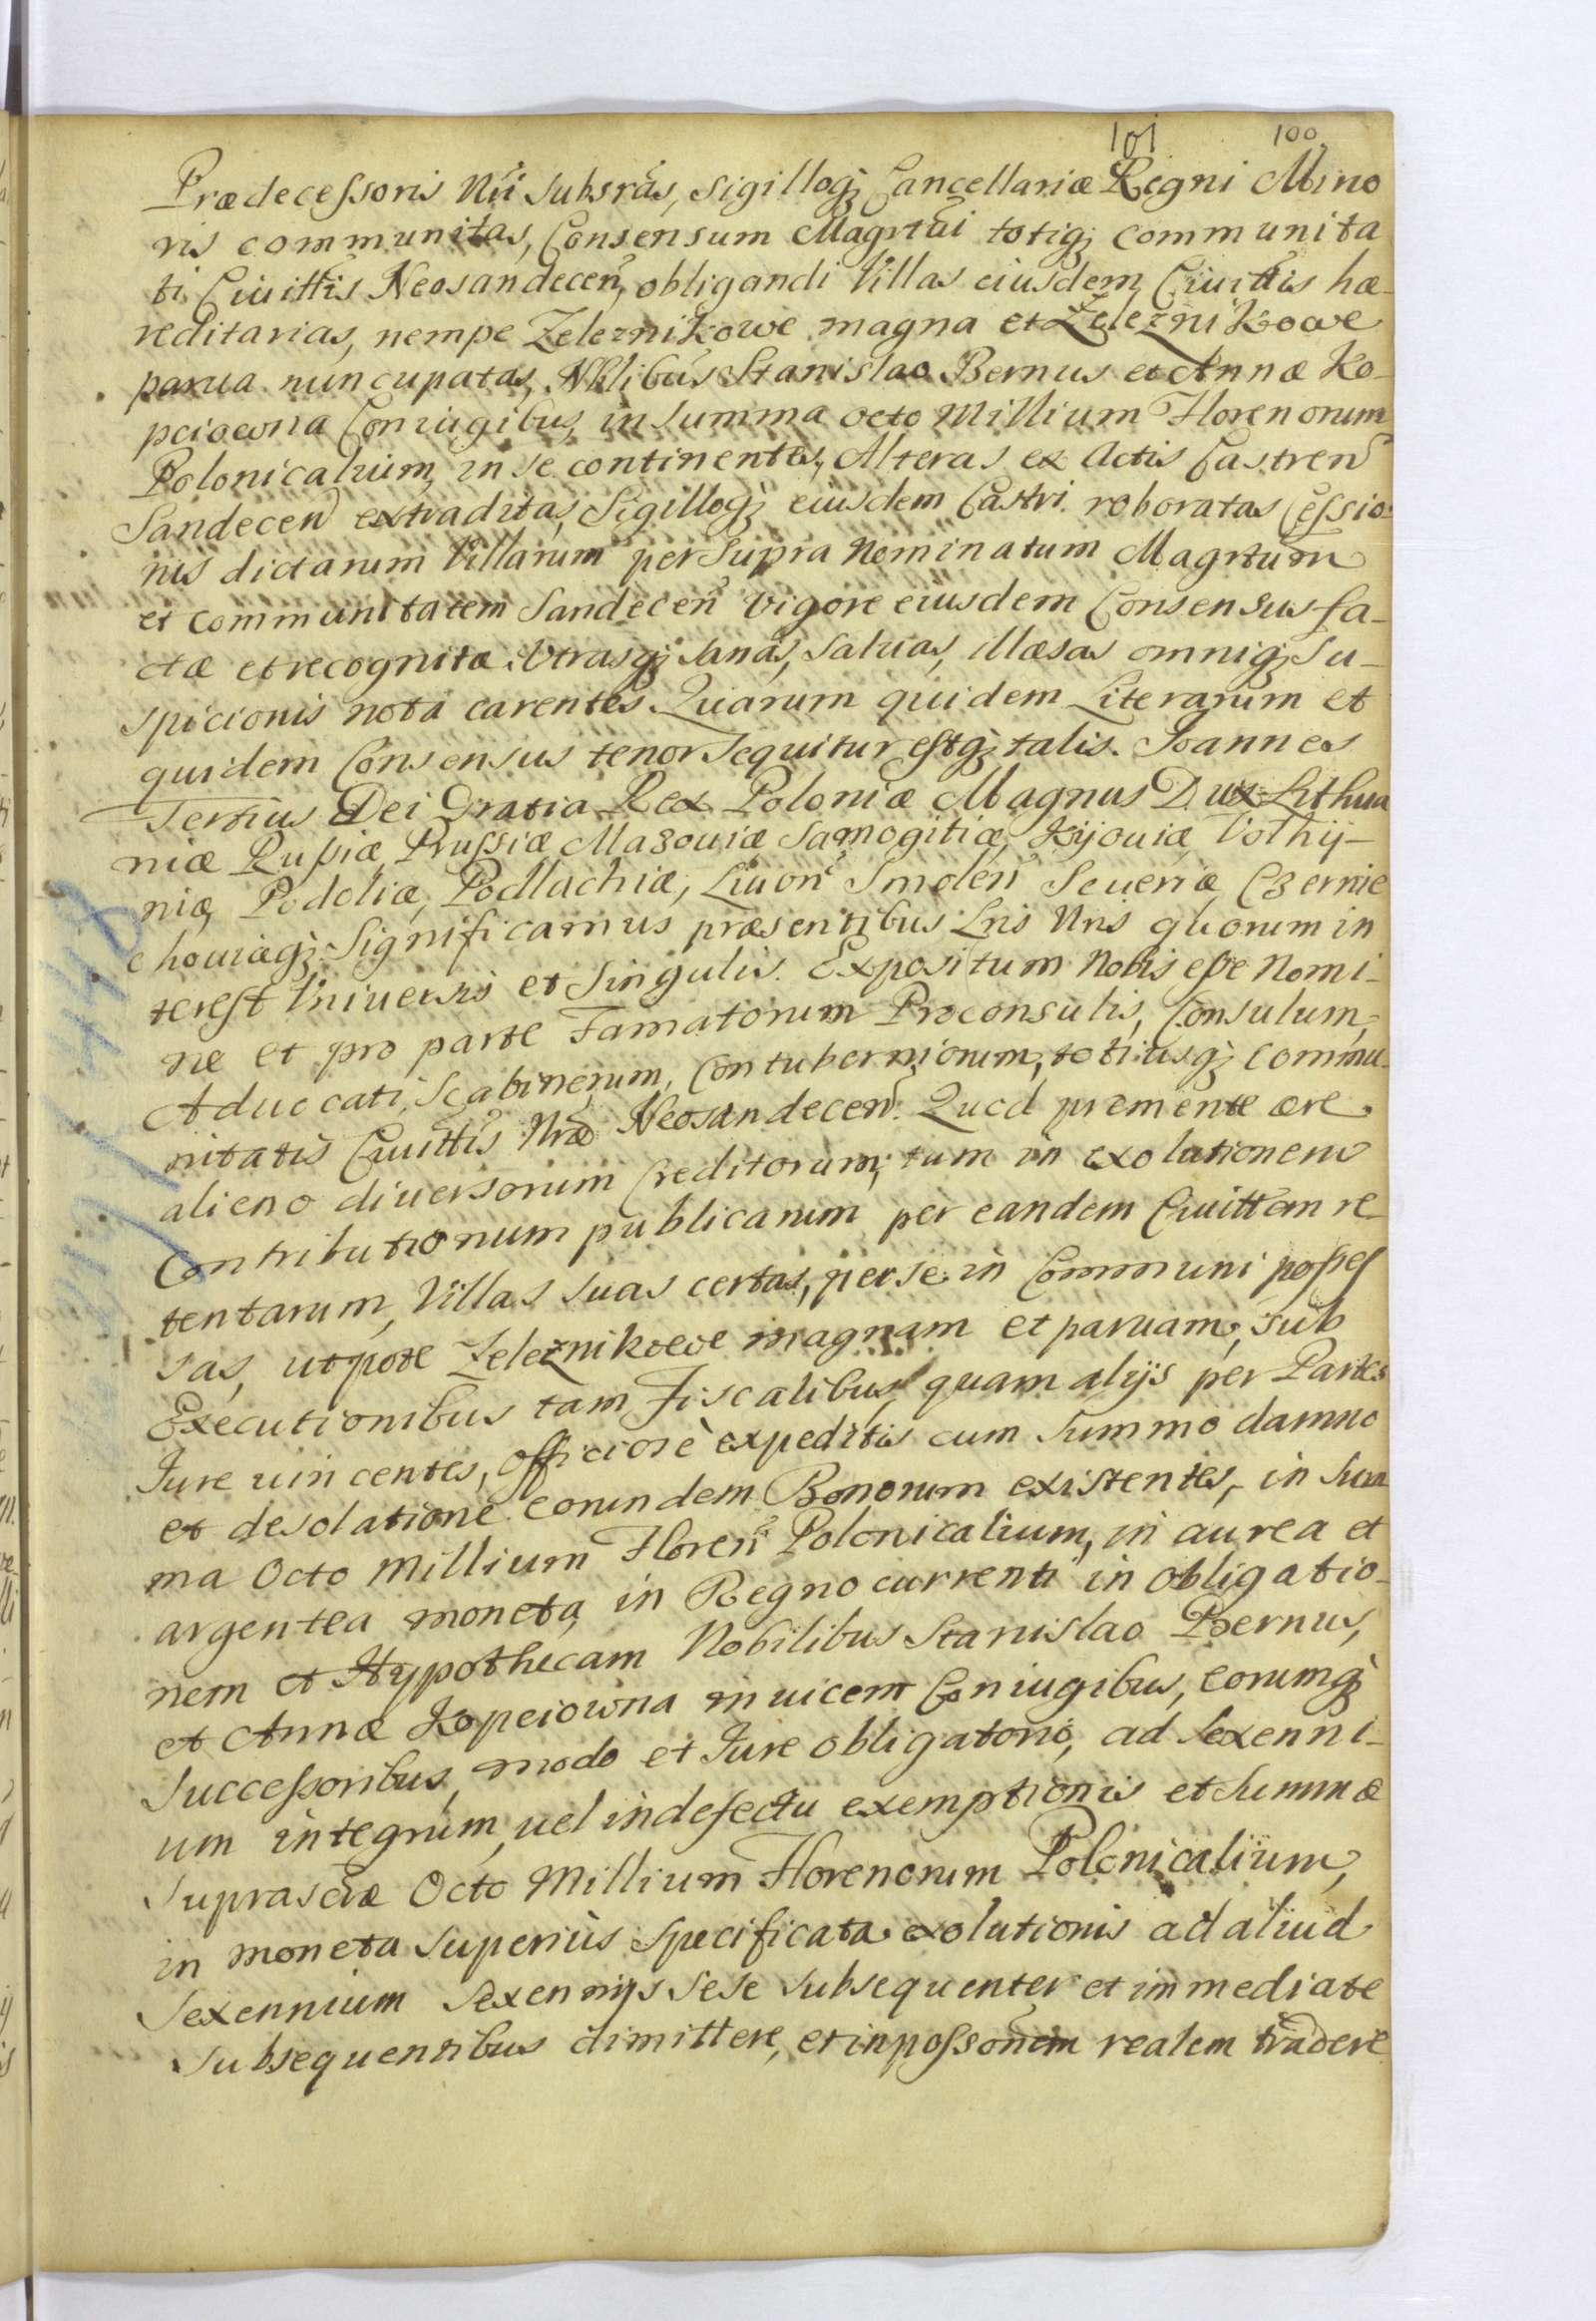 101 100
Prædecessoris Nri subsrās, sigilloq; Cancellariæ Regni Mino
ris communitas, Consensum Magrtui totiq; communita
ti Ciuittis Neosandecen, obligandi Villas eiusdem Ciuittis hæ-
reditarias, nempe Zeleznikowe magna et Zeleznikowe
parua nuncupatas, Nblibus Stanislao Bernus et Annæ Ko-
pciowna Coniugibus, in summa octo Millium Florenorum
Polonicalium, in se continentes, Alteras ex Actis Castren
Sandecen extraditas, Sigilloq; eiusdem Castri roboratas Cessio-
nis dictarum Villarum per Supra Nominatum Magrtum
et communitatem Sandecen vigore eiusdem Consensus fa-
ctæ et recognitæ. Vtrasq; sanas, saluas, illæsas omniq; su-
spicionis nota carentes. Quarum quidem Literarum et
quidem Consensus tenor sequitur estq; talis. Joannes
Tertius Dei Gratia Rex Poloniæ Magnus Dux Lithua
niæ Russiæ Prussiæ Mazouiæ Samogitiæ, Kijouiæ, Volhij-
niæ, Podoliæ, Podlachiæ, Liuon Smolen Seueriæ, Czernie
chouiæq; Significamus præsentibus Lris Nris quorum in
terest Vniuersis et Singulis. Expositum Nobis esse Nomi-
ne et pro parte Famatorum Proconsulis, Consulum,
Aduocati, Scabinorum, Contuberniorum, totiusq; Commu-
nitatis Ciuittis Nræ Neosandecen. Quod premente ære
alieno diuersorum Creditorum, tum in exolutionem
Contributionum publicarum per eandem Ciuittem re-
tentarum, Villas suas certas, per se in Communi posses
sas, utpote Zeleznikowe magnam et paruam, sub
Executionibus tam Fiscalibus, quam alijs per Partes
Jure uincentes, officiosè expeditis cum summo damno
et desolatione eorundem Bonorum existentes, in sum
ma Octo Millium Floren Polonicalium, in aurea et
argentea moneta, in Regno currenti in obligatio-
nem et Hypothecam Nobilibus Stanislao Bernus,
et Annæ Kopciowna inuicem Coniugibus, eorumq;
Successoribus, modo et Jure obligatorio, ad sexenni-
um integrum, uel in defectu exemptionis et summæ
suprascræ Octo Millium Florenorum Polonicalium,
in moneta superiùs specificata exolutionis ad aliud
sexennium sexennijs sese subsequenter et immediate
subsequentibus dimittere, et in possonem realem tradere